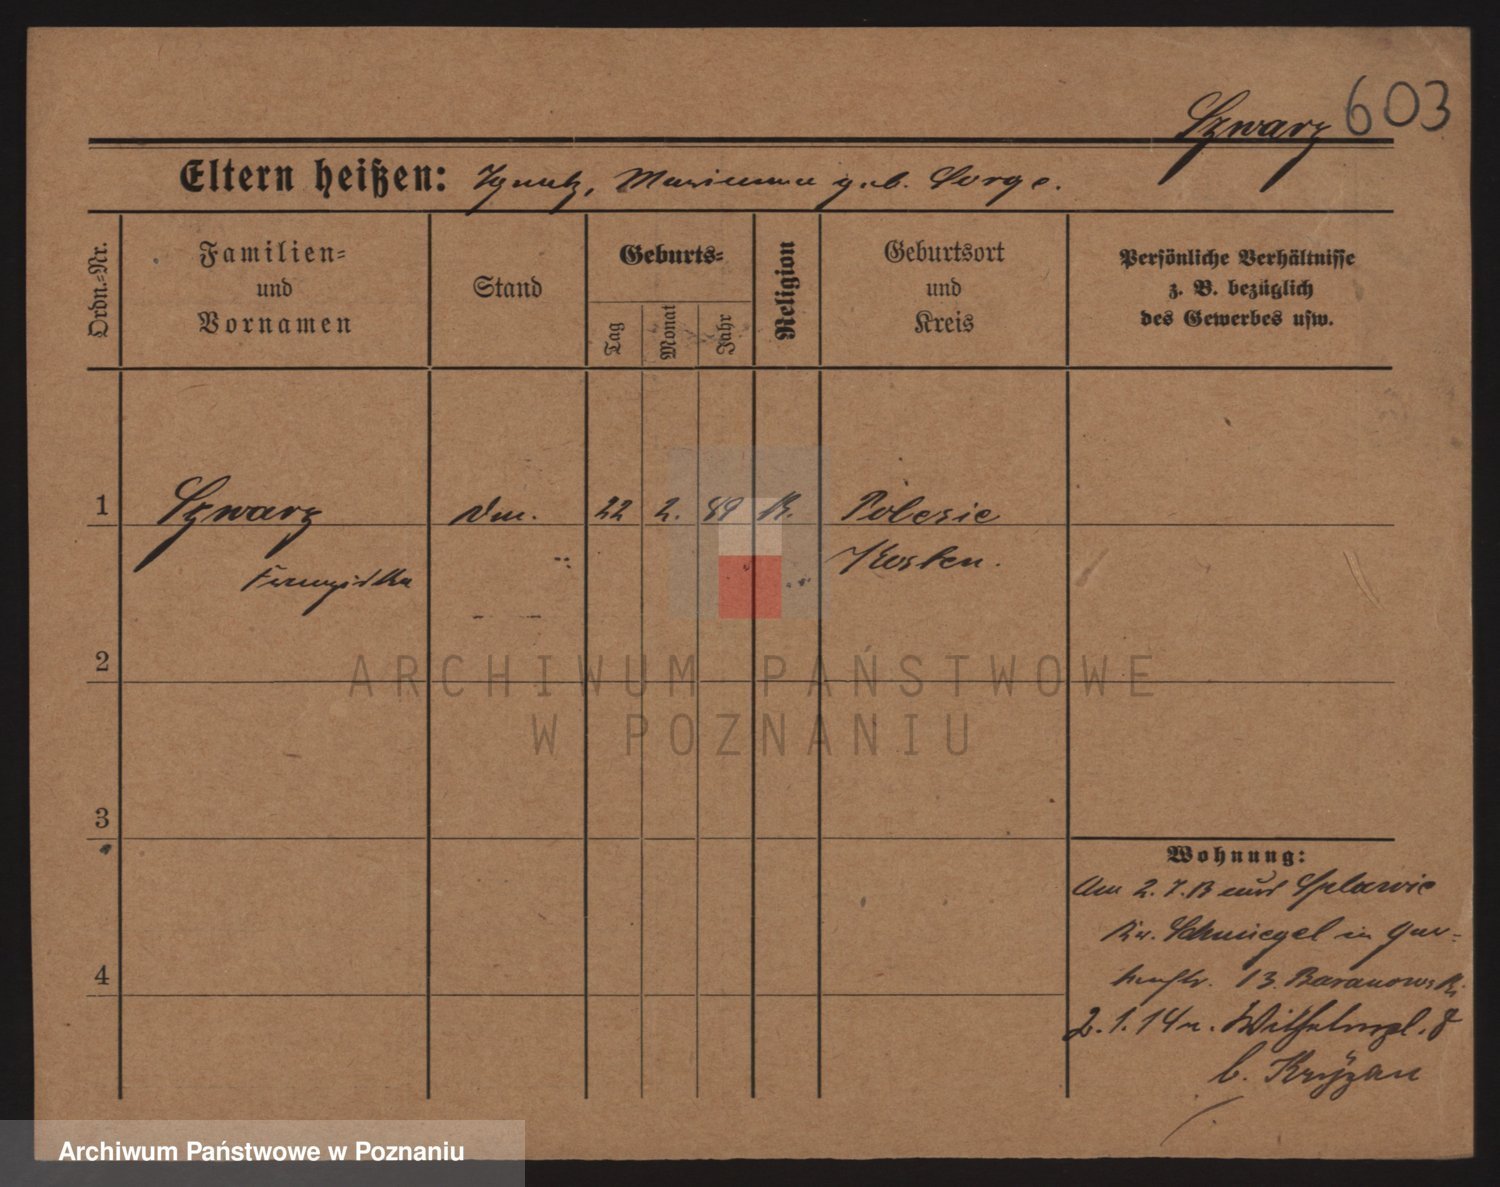 603
Szwarz
Eltern heißen: Ignatz, Marianna geb. Sorge.
Ordn.-Nr.
Familien-
und
Vornamen
Stand
Geburts-
Tag
Monat
Jahr
Religion
Geburtsort
und
Kreis
Persönliche Verhältnisse
z. B. bezüglich
des Gewerbes usw.
1 Szwarz 22 2. 89 K. Polesie
Franziska Kosten.
2
3
4
Wohnung:
Am 2. 7. 13 aus Spławie
Kr. Schmiegel in Gar-
tenstr. 13. Baranowski
2. 1. 14 n. Wilhelmpl. 8
b. Kryzan
ARCHIWUM PAŃSTWOWE
W POZNANIU
Archiwum Państwowe w Poznaniu